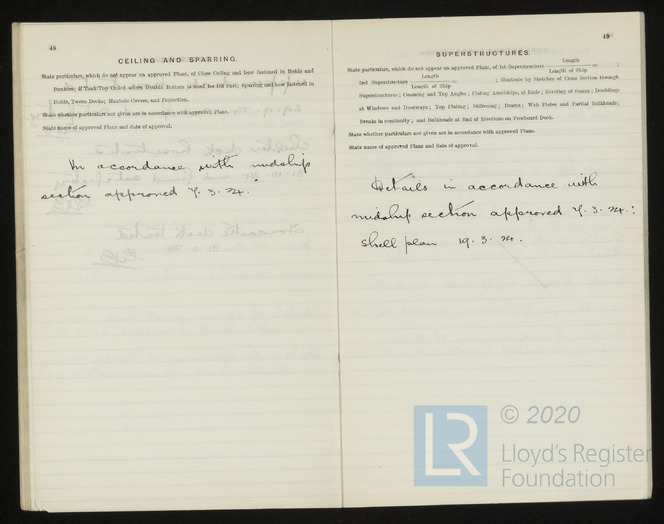 48
CEILING AND SPARRING.
State particulars, which do not appear on approved Plans, of Close Ceiling and how fastened in Holds and
Bunkers; if Tank Top Ceiled where Double Bottom is used for Oil Fuel; Sparring and how fastened in
Holds, Tween Decks; Manhole Covers, and Protection.
State whether particulars not given are in accordance with approved Plans.
State name of approved Plans and date of approval.
In accordance with midship
section approved 7.3.24.
49
SUPERSTRUCTURES.
State particulars, which do not appear on approved Plans, of 1st Superstructure Length / Length of Ship = ;
2nd Superstructure Length / Length of Ship = ; Illustrate by Sketches of Cross Section through
Superstructures; Coaming and Top Angles; Plating Amidships, at Ends; Riveting of Seams; Doublings
at Windows and Doorways; Top Plating; Stiffening; Beams; Web Plates and Partial Bulkheads;
Breaks in continuity; and Bulkheads at End of Erections on Freeboard Deck.
State whether particulars not given are in accordance with approved Plans.
State name of approved Plans and date of approval.
Details in accordance with
midship section approved 7.3.24:
Shell plan 19.3.24.
LR
© 2020
Lloyd's Register
Foundation